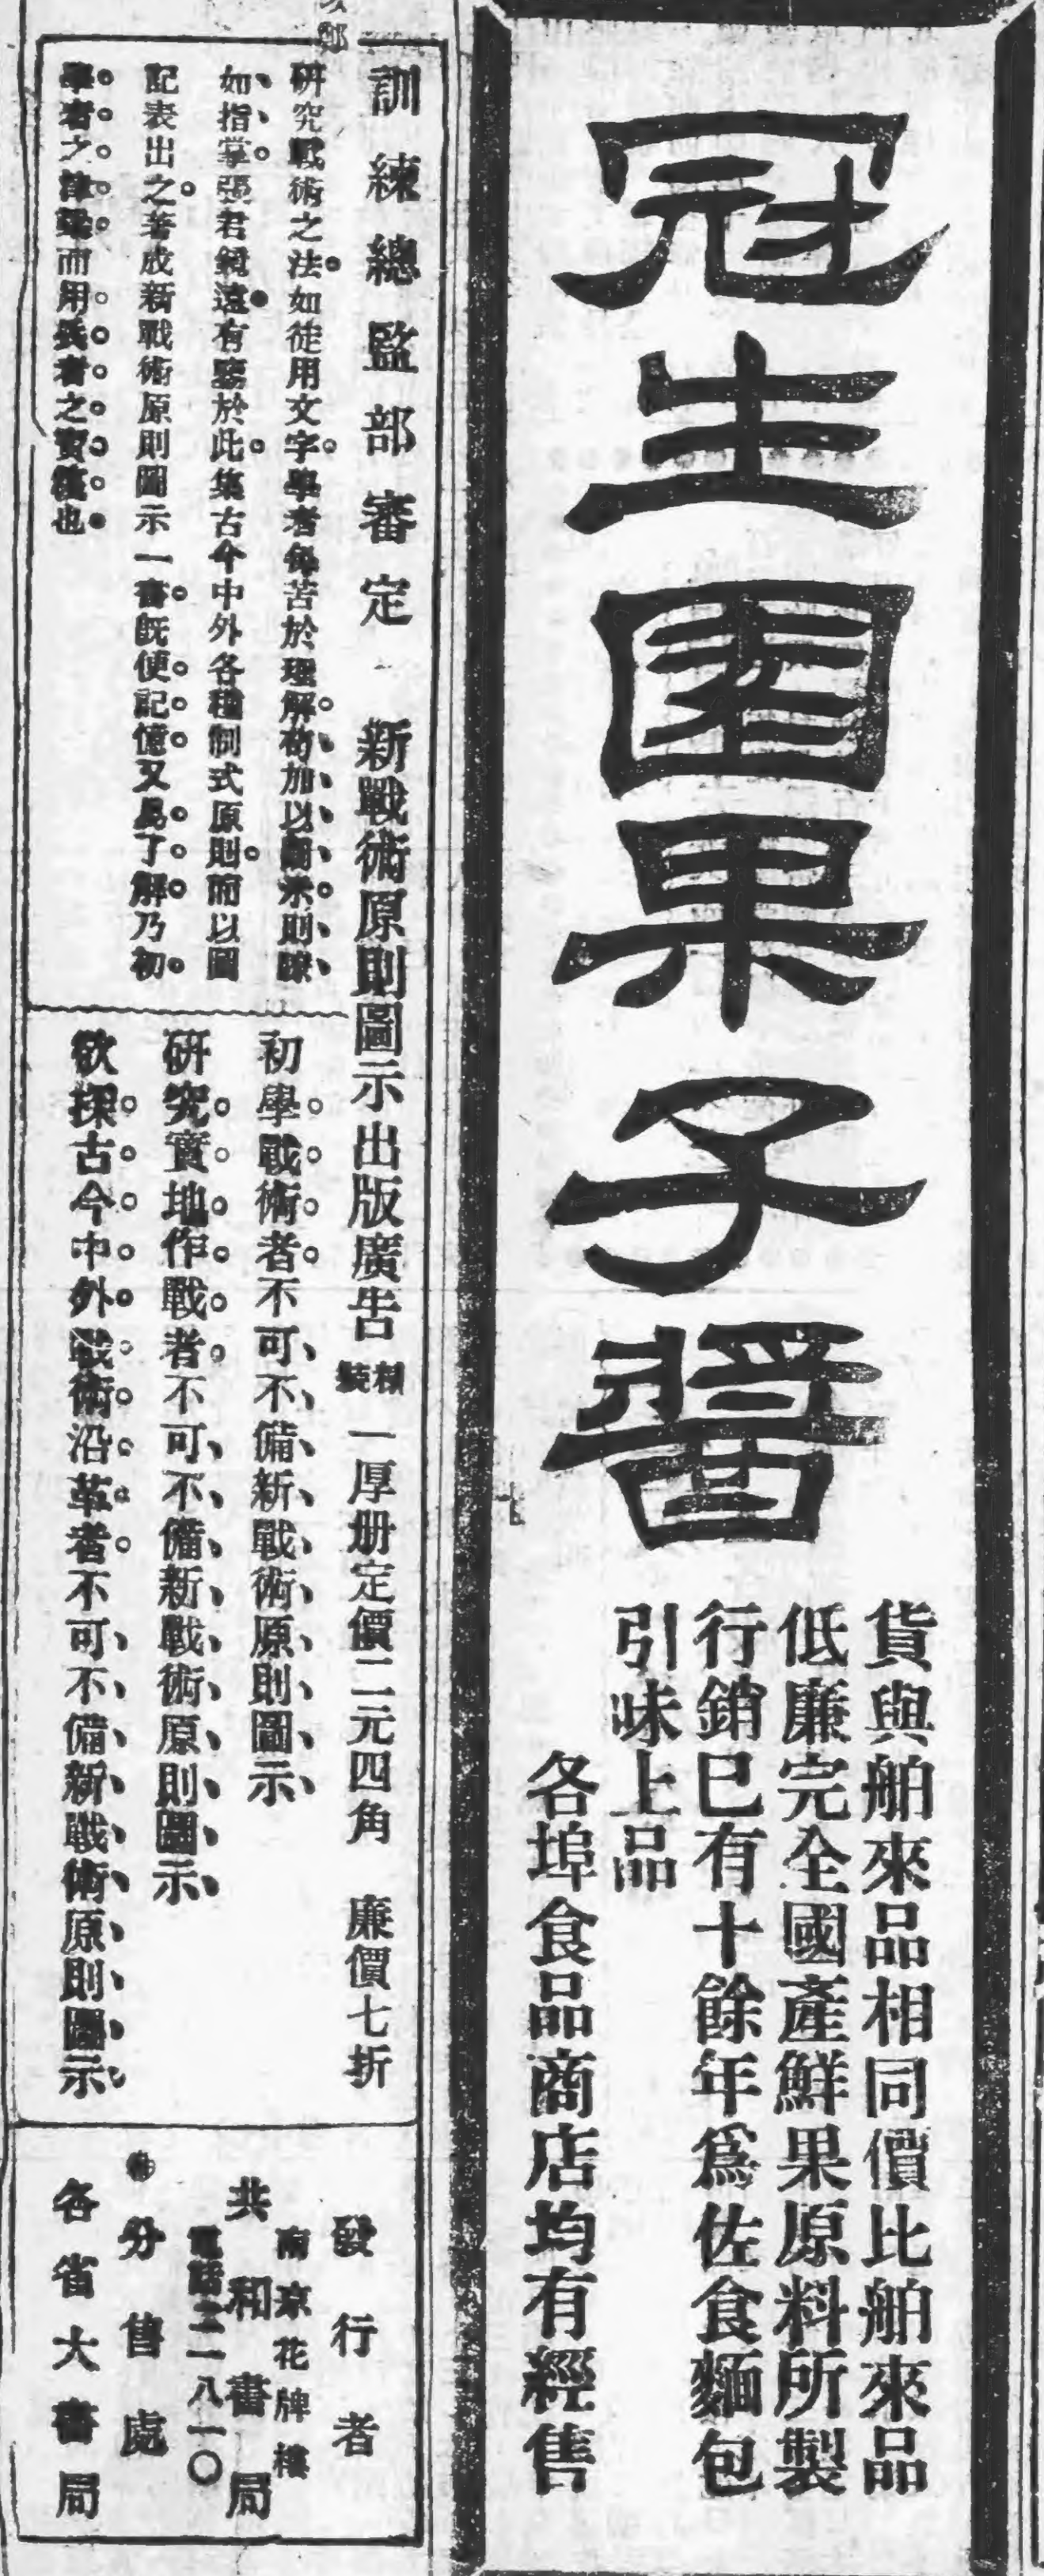 冠生園果子醬
貨與舶來品相同價比舶來品
低廉完全國產鮮果原料所製
行銷已有十餘年爲佐食麵包
引味上品
各埠食品商店均有經售
訓練總監部審定 新戰術原則圖示出版廣告 精裝 一厚册定價二元四角 廉價七折
研究戰術之法如徒用文字學者每苦於理解苟加以圖示則瞭
如指掌張君鏡遠有鑒於此集古今中外各種制式原則而以圖
記表出之著成新戰術原則圖示一書既便記憶又易了解乃初
學者之津梁而用兵者之寶筏也
初學戰術者不可不備新戰術原則圖示
研究實地作戰者不可不備新戰術原則圖示
欲探古今中外戰術沿革者不可不備新戰術原則圖示
發行者
南京花牌樓
共和書局
電話二一八一〇
分售處
各省大書局